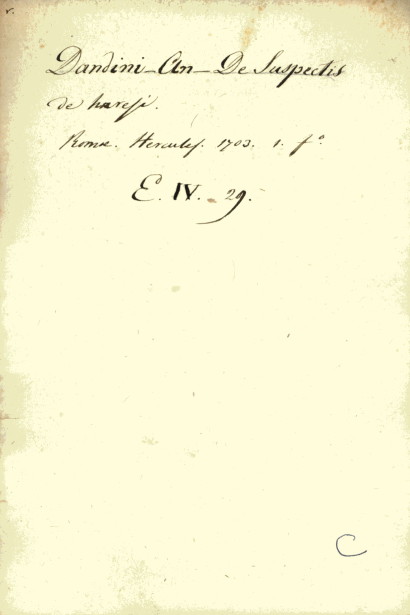 Dandini - An - De Suspectis
de hæresi.
Romæ. Hercules. 1703. 1. fº
E. IV. 29.
C